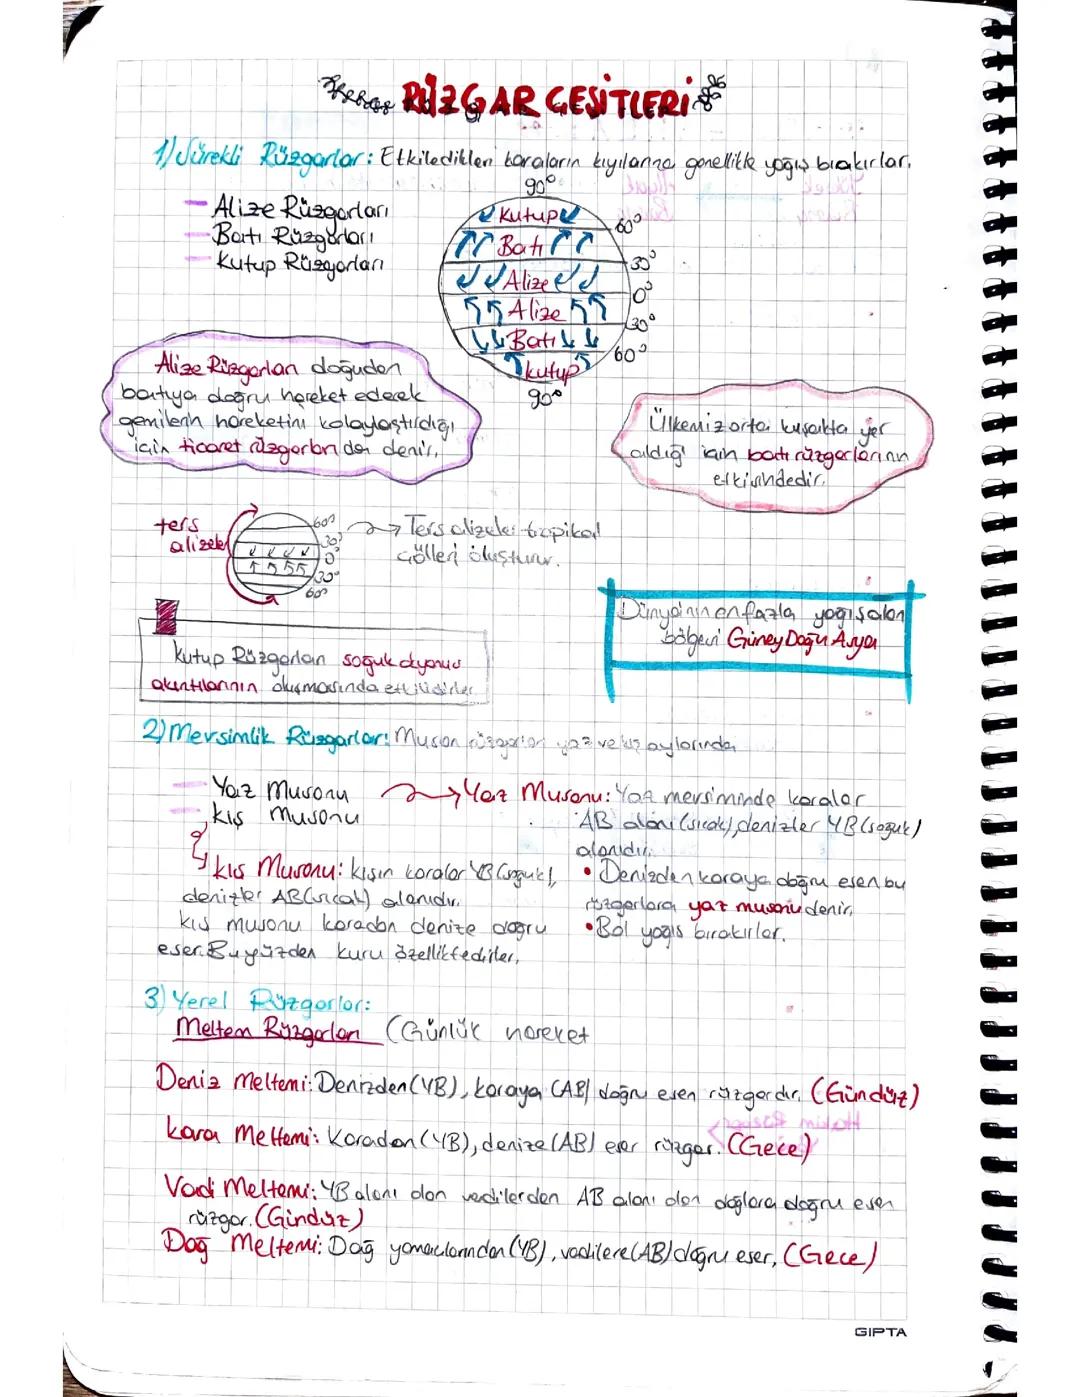 RÜZGAR ÇEŞİTLERİ
1) Sürekli Rüzgarlar: Etkiledikleri karaların kıyılarına genellikle yağış bırakırlar.
- Alize Rüzgarları
- Batı Rüzgarları
- Kutup Rüzgarları
90°
Kutup
60°
Batı
30°
Alize
0°
Alize
30°
Batı
60°
Kutup
90°
Alize Rüzgarları doğudan
batıya doğru hareket ederek
gemilerin hareketini kolaylaştırdığı
için ticaret rüzgarları da denir.
Ülkemiz orta kuşakta yer
aldığı için batı rüzgarlarının
etkisindedir.
ters
alizeler
60°
30°
0°
30°
60°
Ters alizeler tropikal
çölleri oluşturur.
Dünya'nın en fazla yağış alan
bölgesi Güney Doğu Asya
Kutup Rüzgarları soğuk okyanus
akıntılarının oluşmasında etkilidirler
2) Mevsimlik Rüzgarlar: Muson rüzgarları yaz ve kış aylarında
- Yaz Musonu
- Kış Musonu
Yaz Musonu: Yaz mevsiminde karalar
AB alanı (sıcak), denizler YB (soğuk)
alanıdır.
• Denizden karaya doğru esen bu
rüzgarlara yaz musonu denir.
• Bol yağış bırakırlar.
Kış Musonu: Kışın karalar YB (soğuk),
denizler AB (sıcak) alanıdır.
Kış musonu karadan denize doğru
eser. Bu yüzden kuru özelliktedirler.
3) Yerel Rüzgarlar:
Meltem Rüzgarları (Günlük hareket
Deniz Meltemi: Denizden (YB), karaya (AB) doğru esen rüzgardır. (Gündüz)
Kara Meltemi: Karadan (YB), denize (AB) eser rüzgar. (Gece)
Vadi Meltemi: YB alanı olan vadilerden AB alanı olan dağlara doğru esen
rüzgar. (Gündüz)
Dağ Meltemi: Dağ yamaçlarından (YB), vadilere (AB) doğru eser. (Gece)
GIPTA